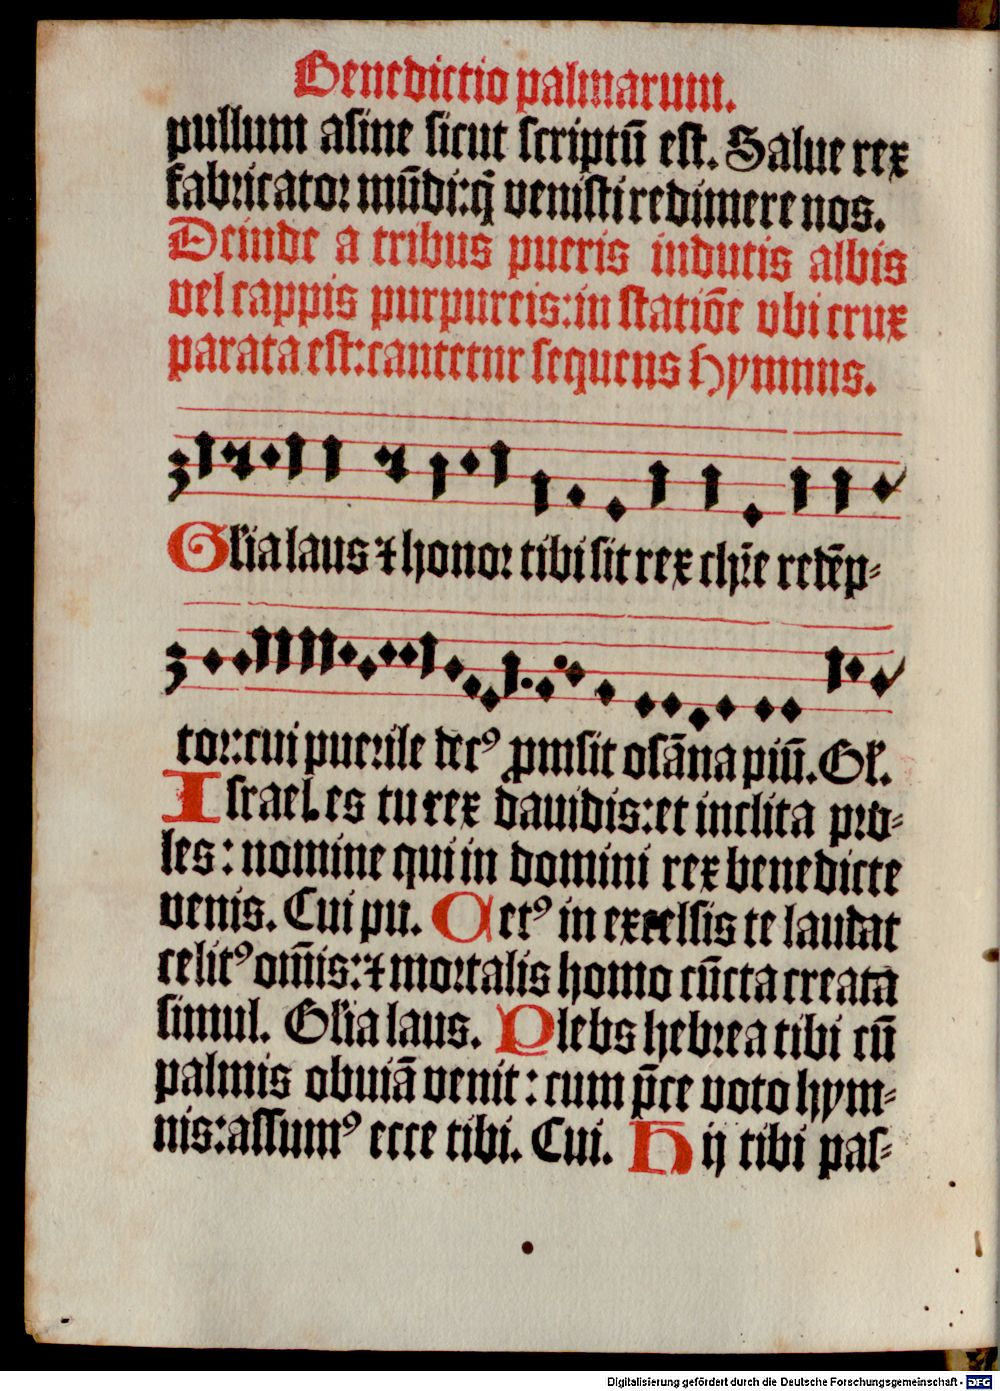 Benedictio palmarum.
pullum asine sicut scriptū est. Salue rex
fabricator mūdi: q̄ venisti redimere nos.
Deinde a tribus pueris indutis albis
vel cappis purpureis: in statiōe vbi crux
parata est: cantetur sequens hymnus.
Gl'ia laus ⁊ honor tibi sit rex chr̄e redēp⸗
tor: cui puerile decꝰ ꝓmsit osāna piū. Gl'.
Israel es tu rex dauidis: et inclita pro⸗
les: nomine qui in domini rex benedicte
venis. Cui pu. Cetꝰ in excelsis te laudat
celitꝰ om̄is: ⁊ mortalis homo cūcta creata
simul. Gl'ia laus. Plebs hebrea tibi cū
palmis obuiā venit: cum p̄ce voto hym⸗
nis: assumꝰ ecce tibi. Cui. Hij tibi pas⸗
Digitalisierung gefördert durch die Deutsche Forschungsgemeinschaft - DFG